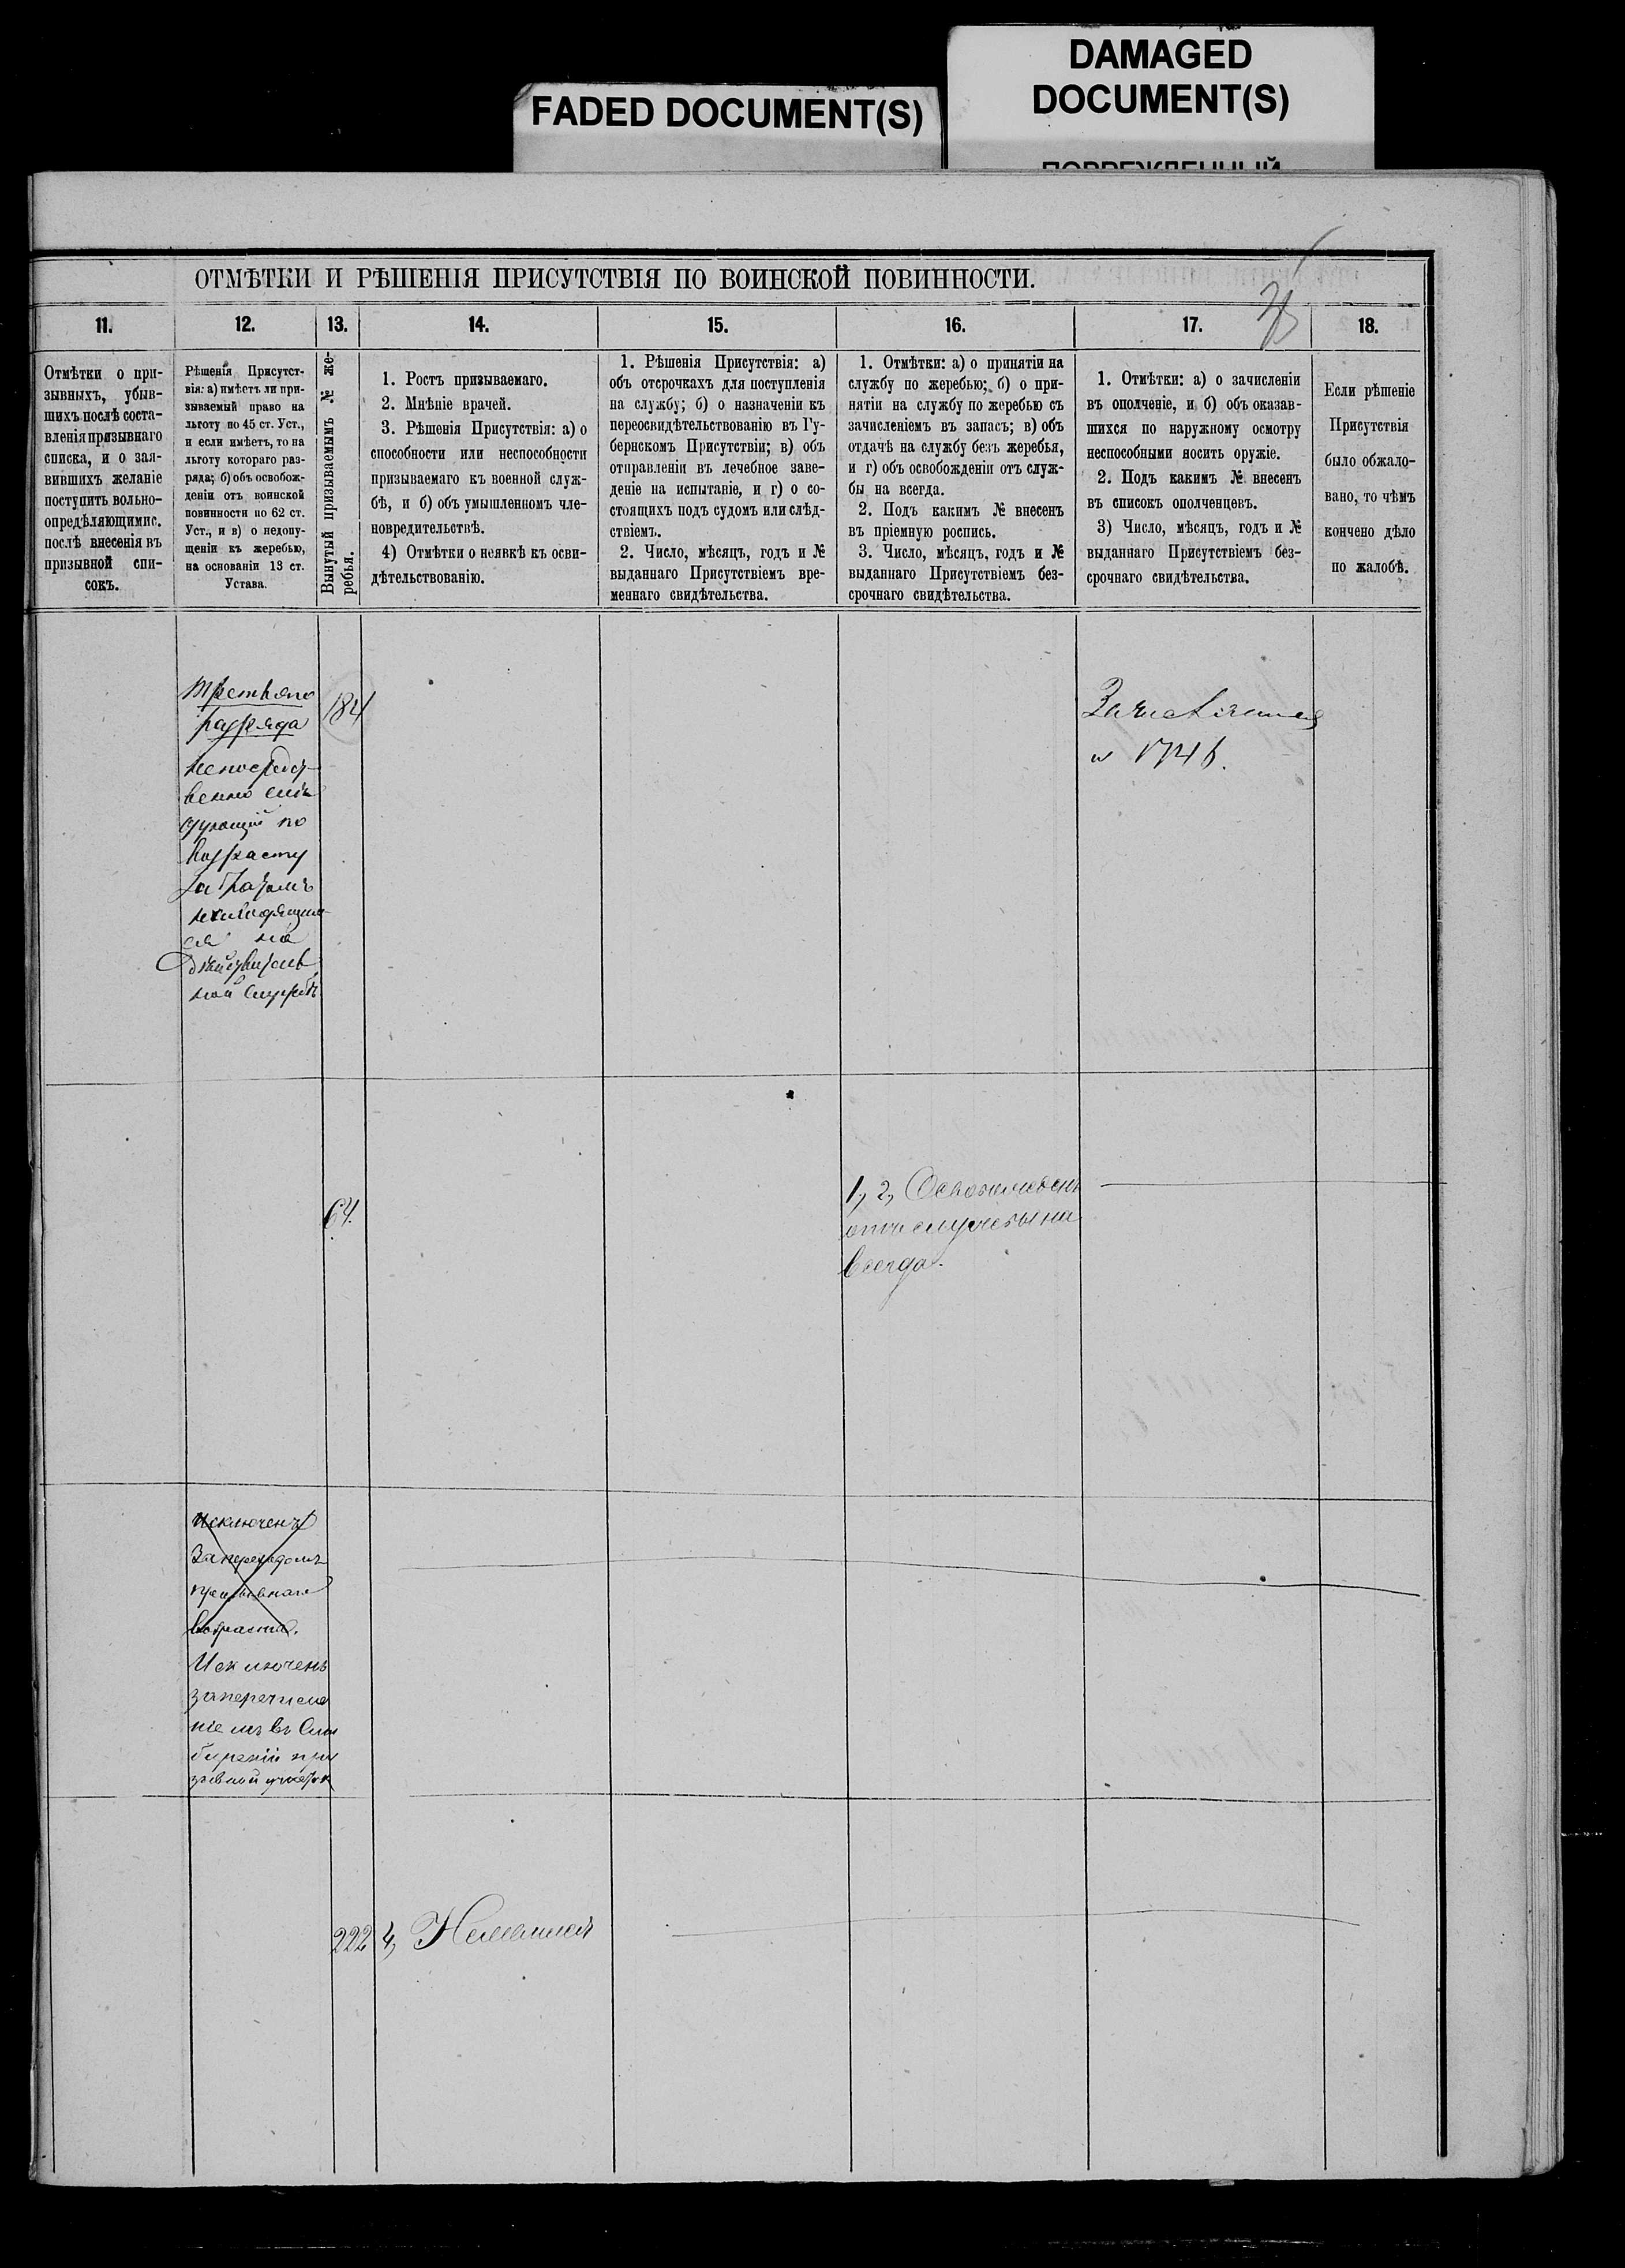 FADED DOCUMENT(S)
DAMAGED
DOCUMENT(S)
ПОВРЕЖДЕННЫЙ
ОТМѢТКИ И РѢШЕНІЯ ПРИСУТСТВІЯ ПО ВОИНСКОЙ ПОВИННОСТИ.
11.
12.
13.
14.
15.
16.
17.
18.
Отмѣтки о при-
зывныхъ, убыв-
шихъ послѣ соста-
вленія призывнаго
списка, и о зая-
вившихъ желаніе
поступить вольно-
опредѣляющимис.
послѣ внесенія въ
призывной спи-
сокъ.
Рѣшенія Присутст-
вія: а) имѣетъ ли при-
зываемый право на
льготу по 45 ст. Уст.,
и если имѣетъ, то на
льготу котораго раз-
ряда; б) объ освобож-
деніи отъ воинской
повинности по 62 ст.
Уст., и в) о недопу-
щеніи къ жеребью,
на основаніи 13 ст.
Устава.
Вынутый призываемымъ № же-
ребья.
1. Ростъ призываемаго.
2. Мнѣніе врачей.
3. Рѣшенія Присутствія: а) о
способности или неспособности
призываемаго къ военной служ-
бѣ, и б) объ умышленномъ чле-
новредительствѣ.
4) Отмѣтки о неявкѣ къ осви-
дѣтельствованію.
1. Рѣшенія Присутствія: а)
объ отсрочкахъ для поступленія
на службу; б) о назначеніи къ
переосвидѣтельствованію въ Гу-
бернскомъ Присутствіи; в) объ
отправленіи въ лечебное заве-
деніе на испытаніе, и г) о со-
стоящихъ подъ судомъ или слѣд-
ствіемъ.
2. Число, мѣсяцъ, годъ и №
выданнаго Присутствіемъ вре-
меннаго свидѣтельства.
1. Отмѣтки: а) о принятіи на
службу по жеребью; б) о при-
нятіи на службу по жеребью съ
зачисленіемъ въ запасъ; в) объ
отдачѣ на службу безъ жеребья,
и г) объ освобожденіи отъ служ-
бы на всегда.
2. Подъ какимъ № внесенъ
въ пріемную роспись.
3. Число, мѣсяцъ, годъ и №
выданнаго Присутствіемъ без-
срочнаго свидѣтельства.
1. Отмѣтки: а) о зачисленіи
въ ополченіе, и б) объ оказав-
шихся по наружному осмотру
неспособными носить оружіе.
2. Подъ какимъ № внесенъ
въ списокъ ополченцевъ.
3) Число, мѣсяцъ, годъ и №
выданнаго Присутствіемъ без-
срочнаго свидѣтельства.
Если рѣшеніе
Присутствія
было обжало-
вано, то чѣмъ
кончено дѣло
по жалобѣ.
третьяго
разряда
непосредст-
венно слѣ
дующій по
возрасту
за братомъ
находящим
ся на
дѣйствитель
ной службѣ
184
64.
1, 2, Освобожденъ
отъ службы на
всегда.
Исключенъ
за переходомъ
призывнаго
возраста.
Исключенъ
за перечисле
ніемъ въ Сим
бирскій при
зывной участок
222
4, Неявился